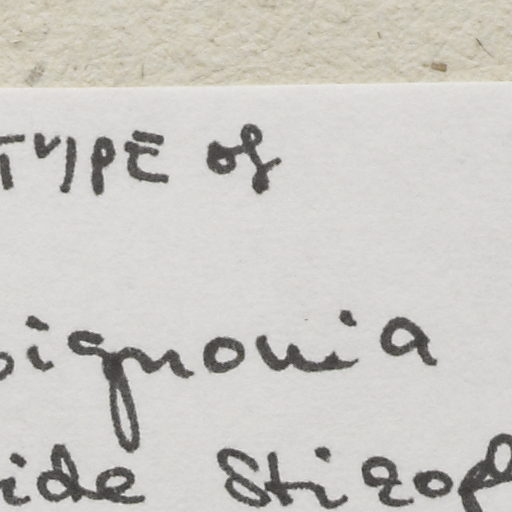 TYPE of
bignonia
vide Stizoph